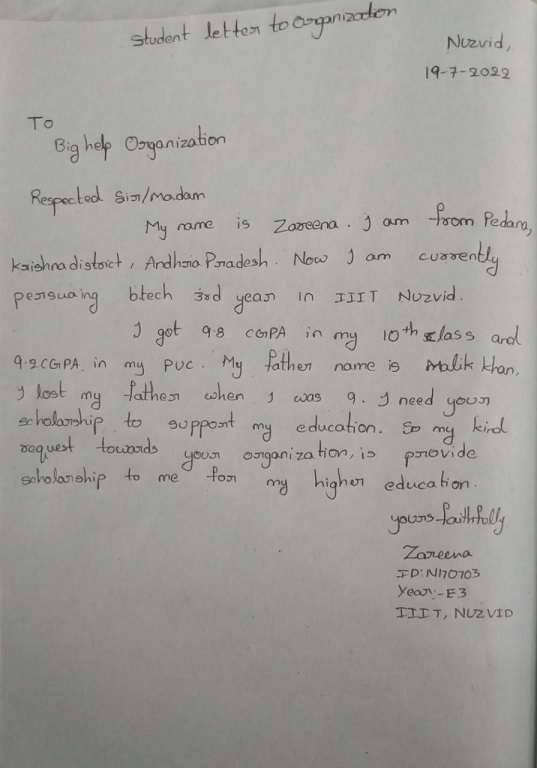 Student letter to organization
Nuzvid,
19-7-2022
To
Big help Organization
Respected Sir/Madam
My name is Zareena. I am from Pedana,
Krishna district, Andhra Pradesh. Now I am currently
persuaing btech 3rd year in IIIT Nuzvid.
I got 9.8 CGPA in my 10th class and
9.2 CGPA in my PUC. My father name is Malik khan.
I lost my father when I was 9. I need your
scholarship to support my education. So my kind
request towards your organization, is provide
scholarship to me for my higher education.
yours faithfully
Zareena
ID: N170703
Year:-E3
IIIT, NUZVID